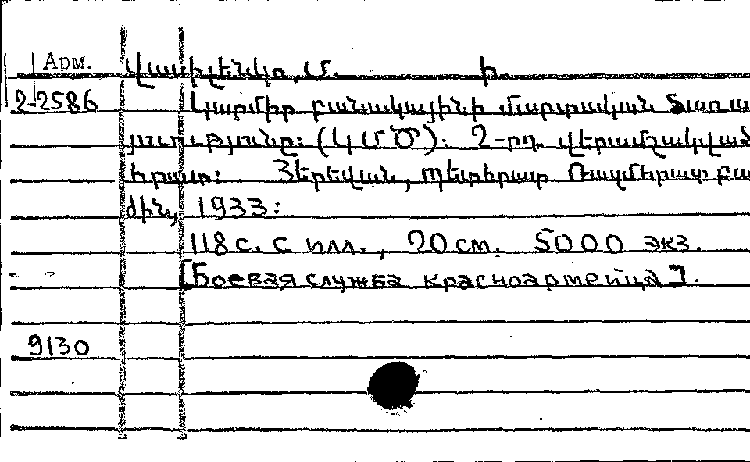 Арм. Վասիլենկո, Մ. Ի.
2-2586 Կարմիր բանակայինի մարտական ծառա
յությունը: (ԿՄԾ): 2-րդ. վերամշակված
հրատ: Յերեվան, Պետհրատ Ռազմհրատ բա
ժին, 1933:
118 с. с илл., 20 см. 5000 экз.
[Боевая служба красноармейца].
9130